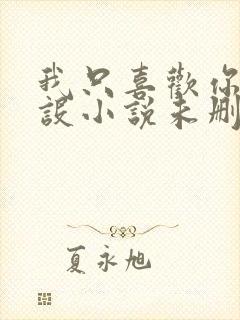 我只喜歡你
設小說未刪
夏永旭